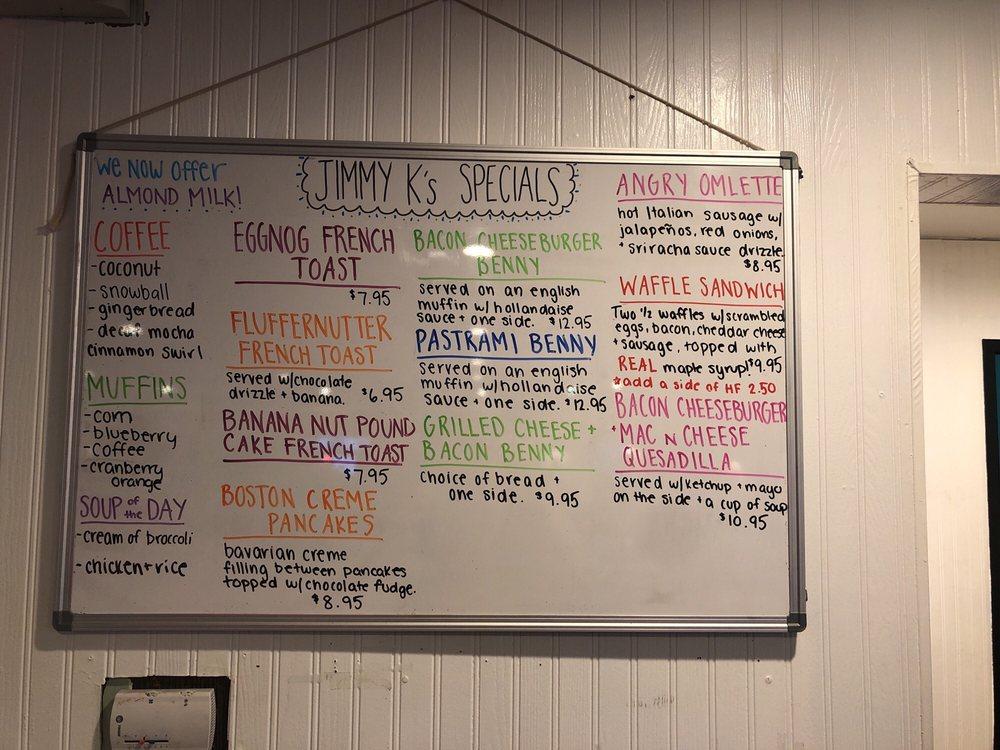 JIMMY K's SPECIALS
WE NOW OFFER
ALMOND MILK!
COFFEE
-coconut
-snowball
-gingerbread
-decaf mocha
cinnamon swirl
MUFFINS
-corn
-blueberry
-coffee
-cranberry
orange
SOUP of the DAY
-cream of broccoli
-chicken+rice
EGGNOG FRENCH
TOAST
$7.95
FLUFFERNUTTER
FRENCH TOAST
served w/chocolate
drizzle + banana. $6.95
BANANA NUT POUND
CAKE FRENCH TOAST
$7.95
BOSTON CREME
PANCAKES
bavarian creme
filling between pancakes
topped w/chocolate fudge.
$8.95
BACON CHEESEBURGER
BENNY
served on an english
muffin w/hollandaise
sauce + one side. $12.95
PASTRAMI BENNY
served on an english
muffin w/hollandaise
sauce + one side. $12.95
GRILLED CHEESE +
BACON BENNY
choice of bread +
one side. $9.95
ANGRY OMLETTE
hot Italian sausage w/
jalapeños, red onions,
+ sriracha sauce drizzle.
$8.95
WAFFLE SANDWICH
Two 1/2 waffles w/scrambled
eggs, bacon, cheddar cheese
+ sausage, topped with
REAL maple syrup! $9.95
*add a side of HF 2.50
BACON CHEESEBURGER
+MAC N CHEESE
QUESADILLA
served w/ketchup + mayo
on the side + a cup of soup
$10.95